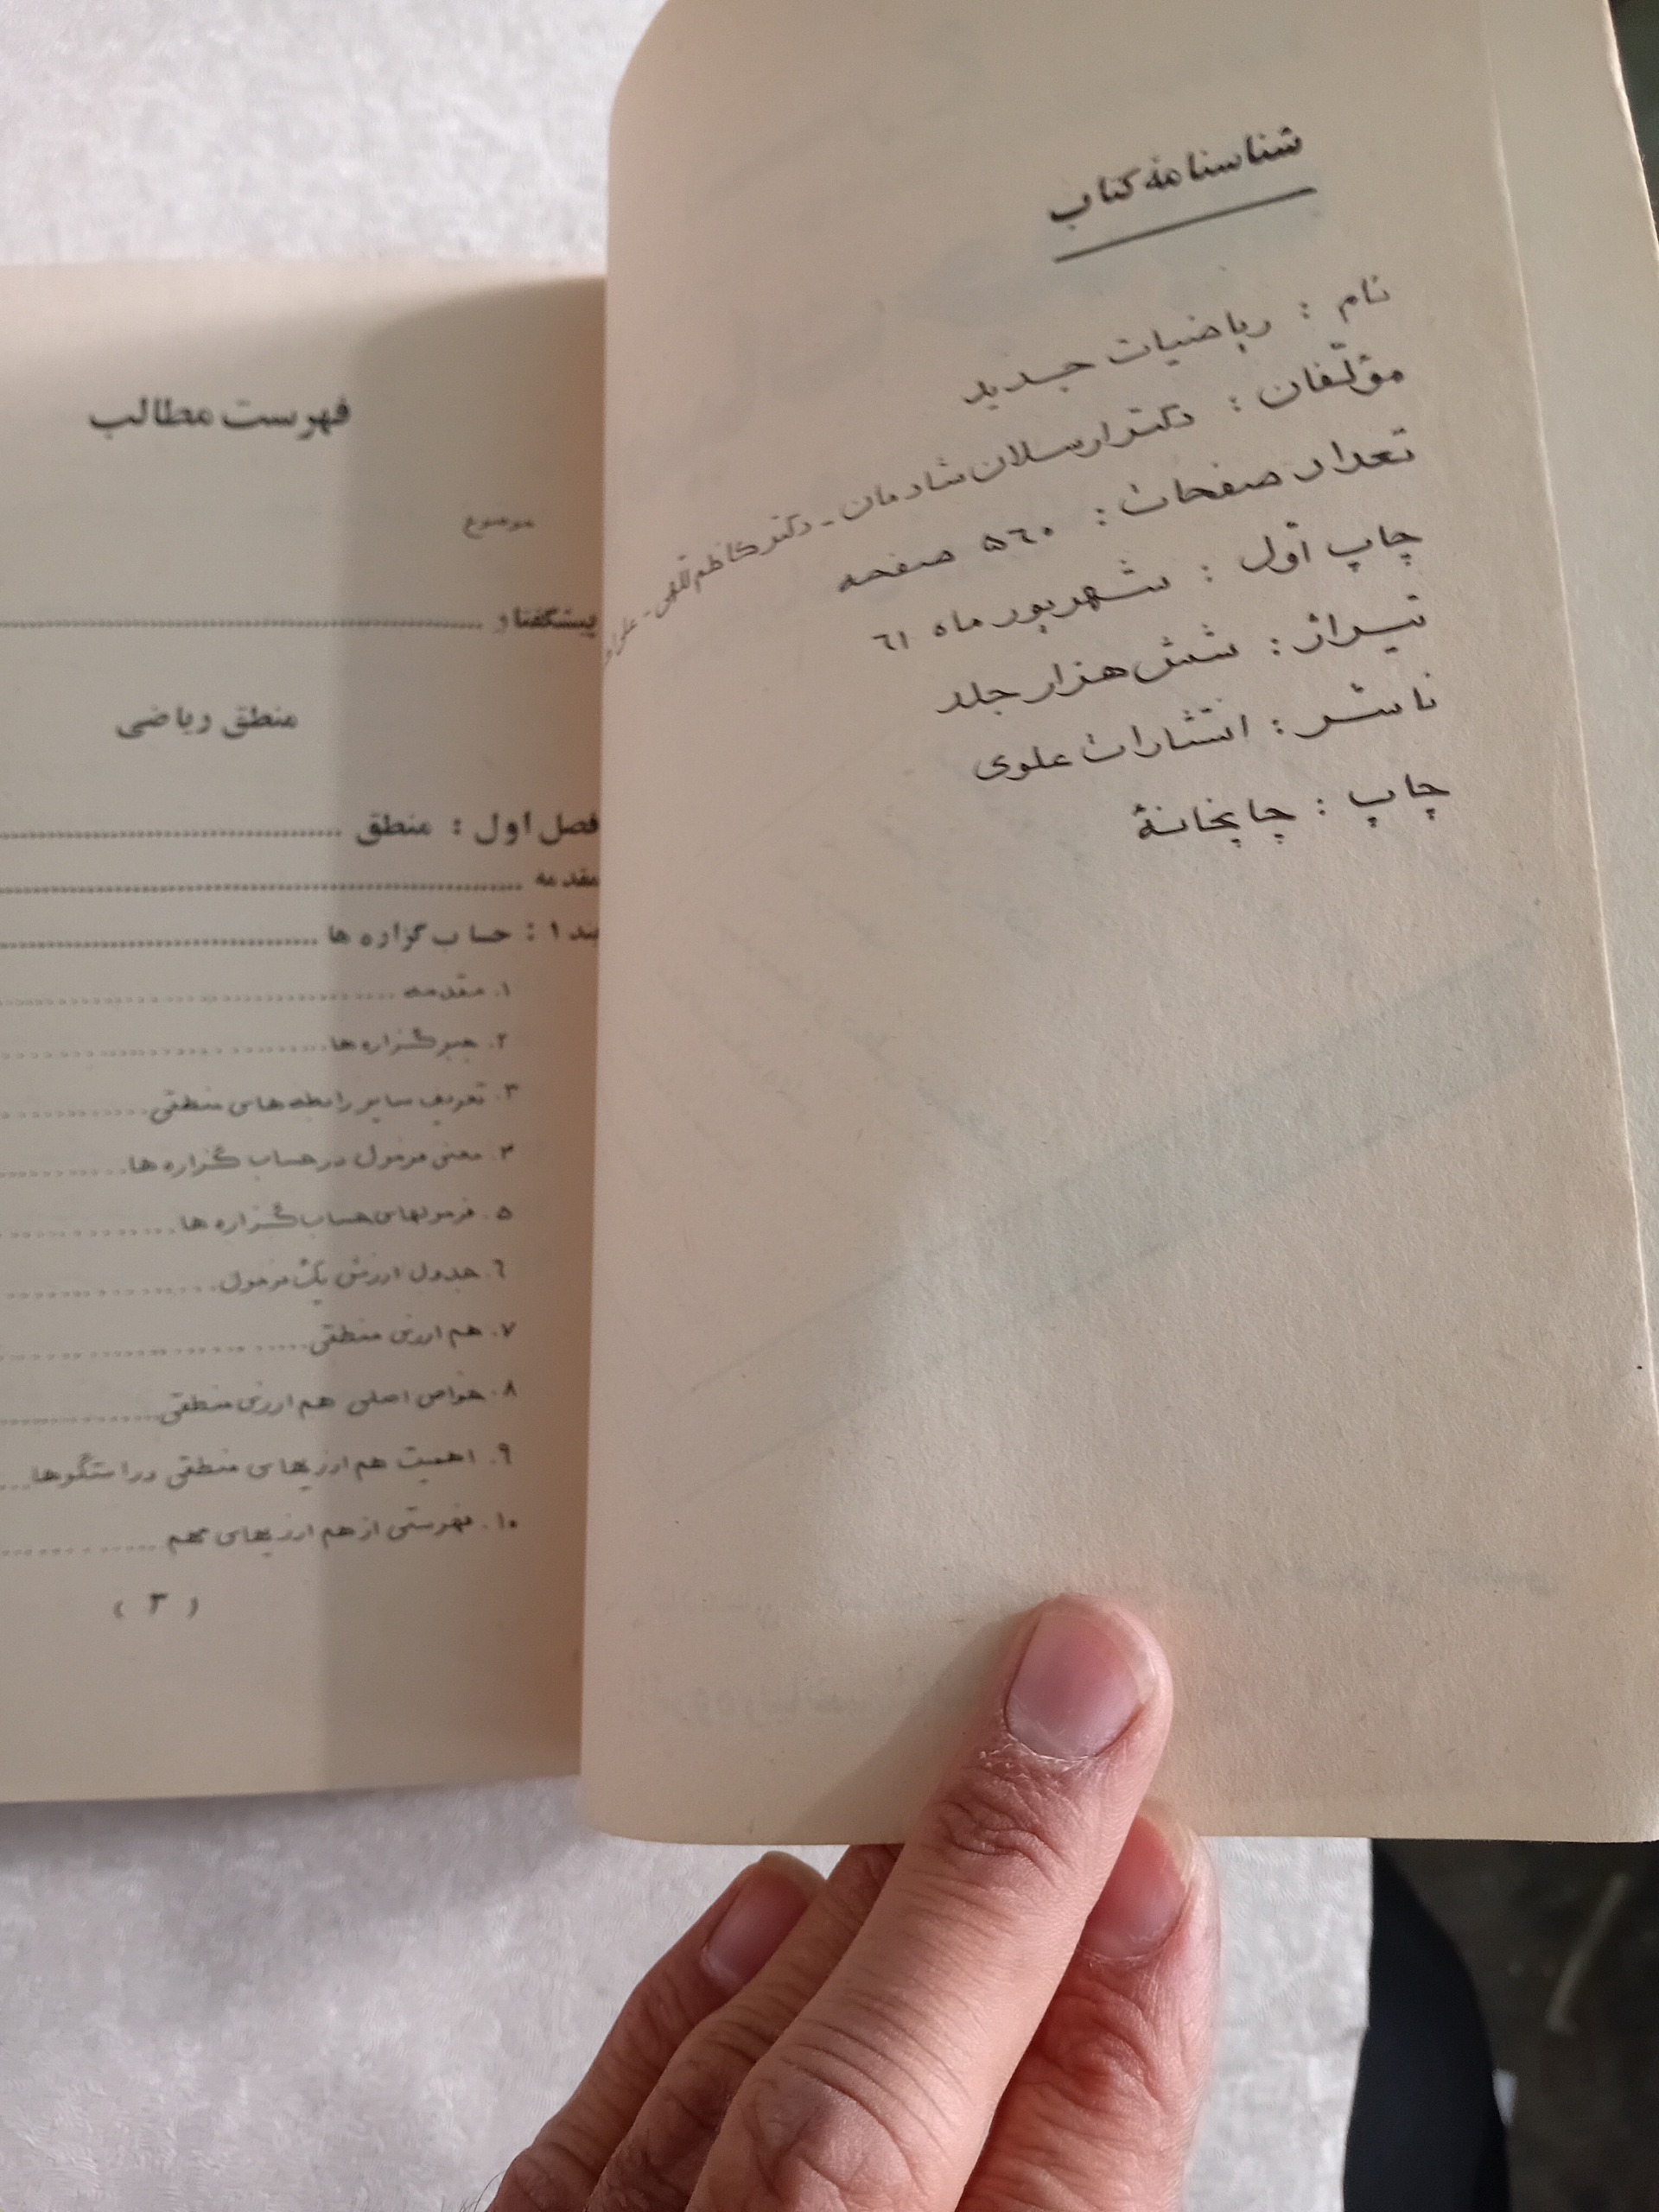 شناسنامهٔ کتاب
نام : ریاضیات جدید
مؤلّفان : دکتر ارسلان شادمان - دکتر کاظم للهی -
تعداد صفحات : ۵٦۰ صفحه
چاپ اوّل : شهریور ماه ٦۱
تیراژ : شش هزار جلد
ناشر : انتشارات علوی
چاپ : چاپخانهٔ
فهرست مطالب
موضوع
پیشگفتار
منطق ریاضی
فصل اول : منطق
مقدمه
بند ۱ : حساب گزاره ها
۱. مقدمه
۲. جبر گزاره ها
۳. تعریف سایر رابطه های منطقی
۴. معنی فرمول در حساب گزاره ها
۵. فرمولهای حساب گزاره ها
٦. جدول ارزش یک فرمول
۷. هم ارزی منطقی
۸. خواص اصلی هم ارزی منطقی
۹. اهمیت هم ارزیهای منطقی و راستگوها
۱۰. فهرستی از هم ارزیهای مهم
( ۳ )